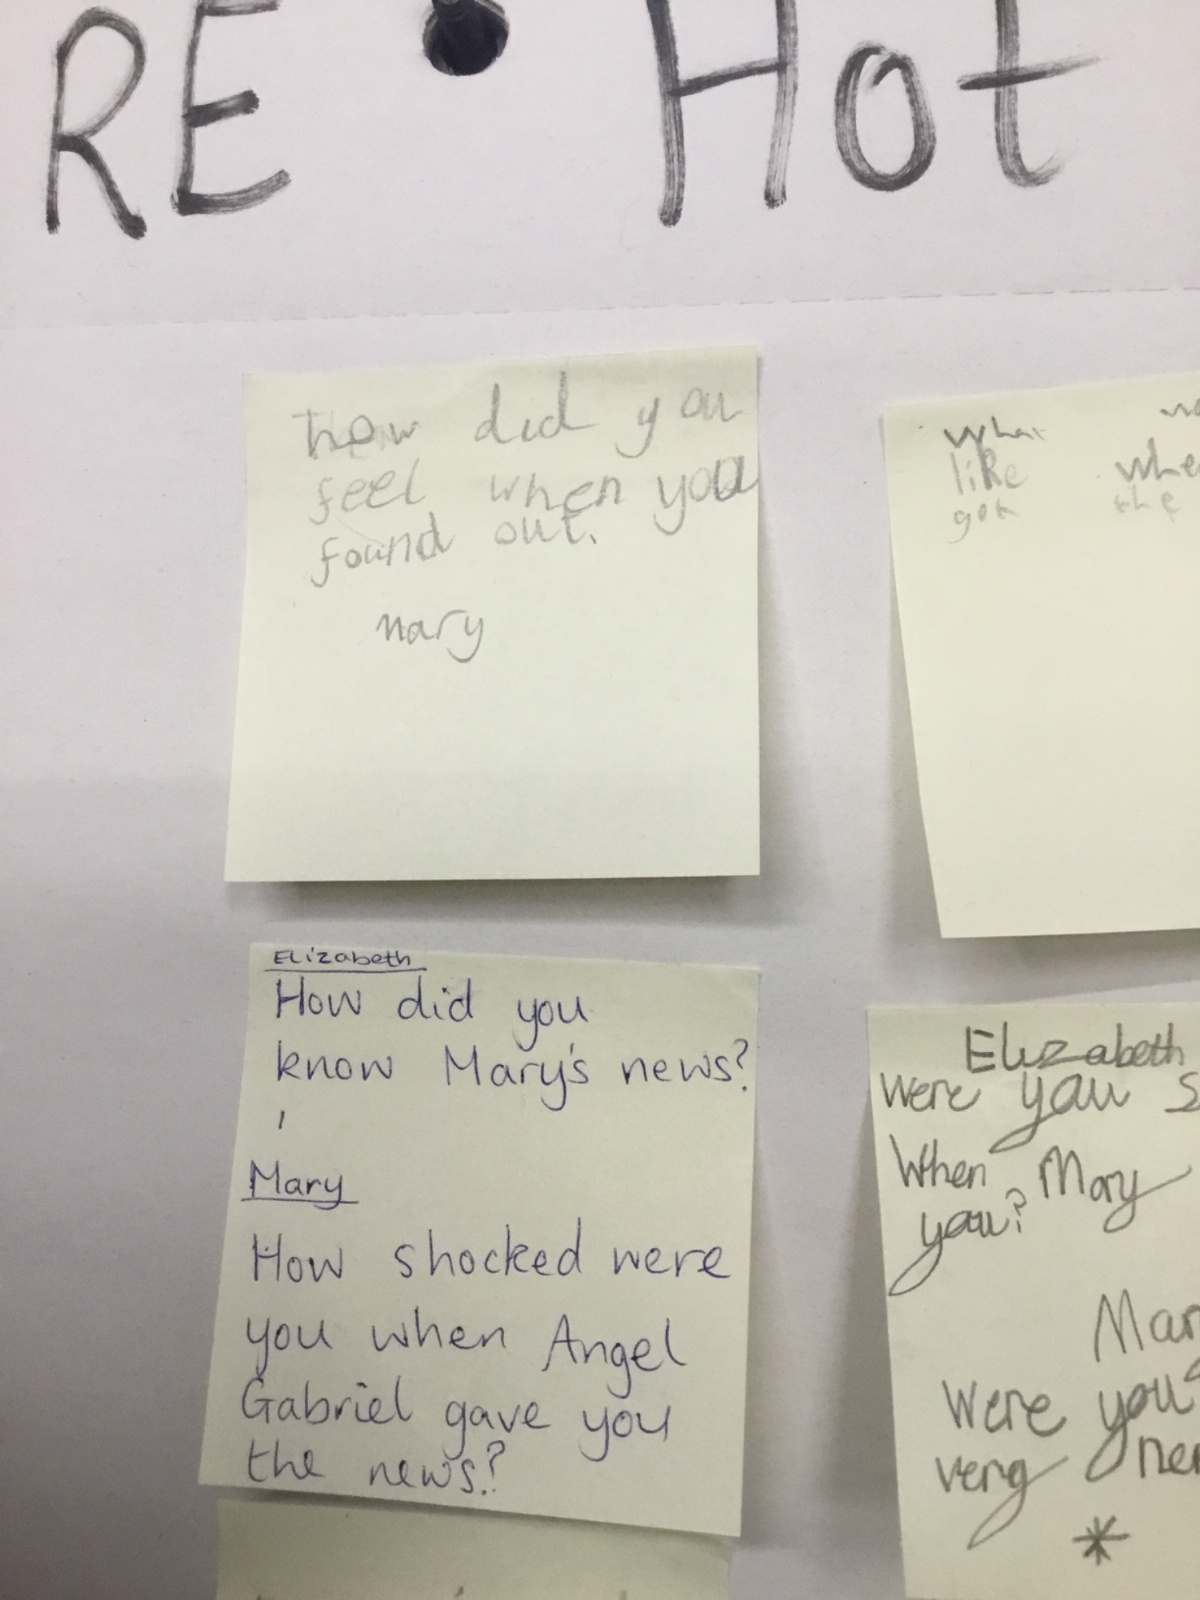 RE Hot
how did you
feel when you
found out.
mary
What
like whe
got the
Elizabeth
How did you
know Mary's news?
Mary
How shocked were
you when Angel
Gabriel gave you
the news?
Elizabeth
were you s
When Mary
you?
Mary
Were you
very ner
*